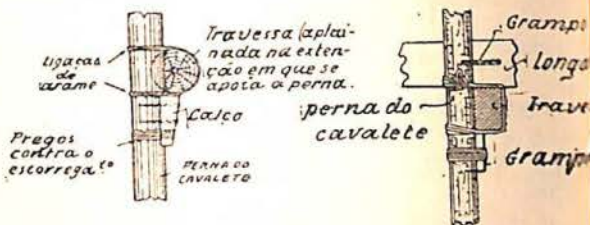 Ligação
de
arame
Travessa (aplai-
nada na exten-
ção em que se
apoia a perna.
Calço
Pregos
contra o
escorregatº
PERNA DO
CAVALETO
Grampo
longa
perna do
cavalete
Trave
Grampo